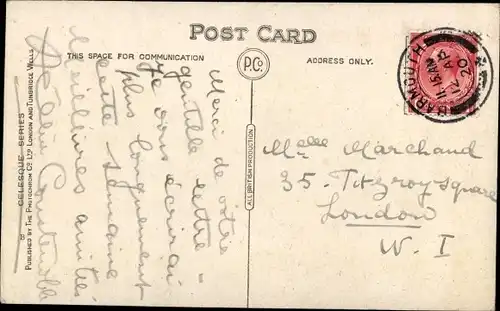 POST CARD
THIS SPACE FOR COMMUNICATION
P.Co.
ADDRESS ONLY.
BARMOUTH
11.15 AM
12 AP
20
Merci de votre
gentille lettre -
Je vous écrirai
plus longuement
cette semaine
Meilleures amitiés
Constable
Melle Marchand
35. Fitzroy square
London
W. I
ALL BRITISH PRODUCTION
CELESQUE SERIES
PUBLISHED BY THE PHOTOCHROM CO. LTD. LONDON AND TUNBRIDGE WELLS